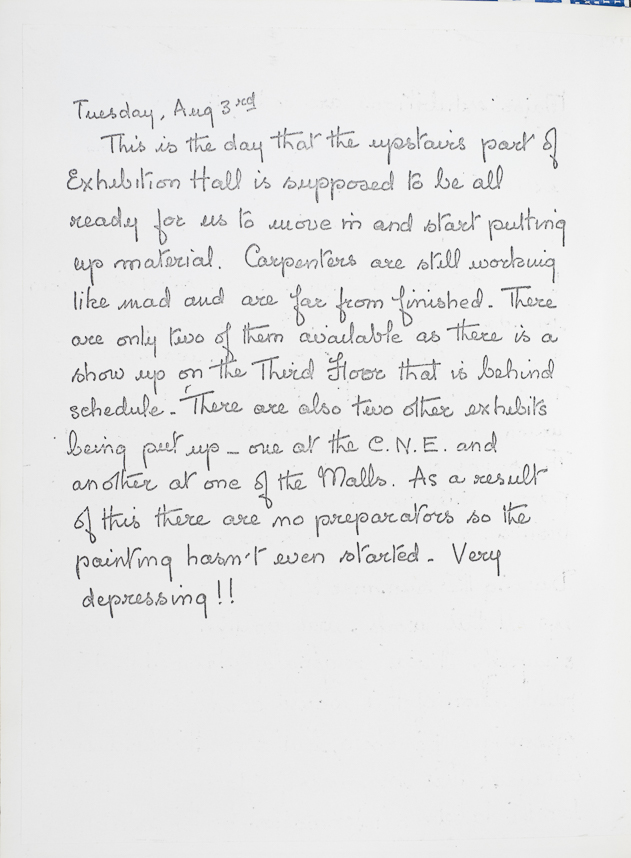 Tuesday, Aug 3rd
This is the day that the upstairs part of
Exhibition Hall is supposed to be all
ready for us to move in and start putting
up material. Carpenters are still working
like mad and are far from finished. There
are only two of them available as there is a
show up on the Third Floor that is behind
schedule. There are also two other exhibits
being put up - one at the C.N.E. and
another at one of the Malls. As a result
of this there are no preparators so the
painting hasn't even started. Very
depressing!!